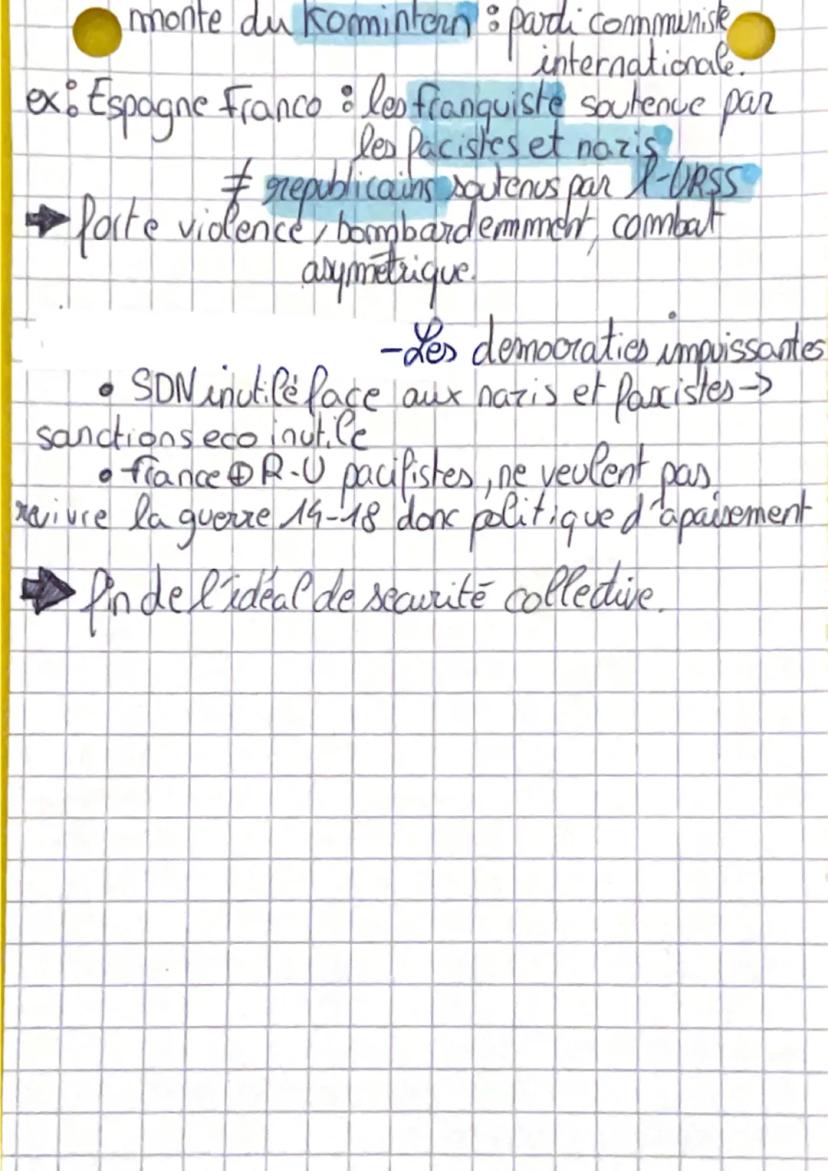 monte du Komintern : parti communiste
internationale.
ex : Espagne Franco : les franquiste soutenue par
les facistes et nazis
≠ republicains soutenus par l'URSS
➡ forte violence, bombardemment, combat
asymétrique.
- Les democraties impuissantes
• SDN inutile face aux nazis et facistes →
sanctions eco inutile
• france ⊕ R-U pacifistes, ne veulent pas
revivre la guerre 14-18 donc politique d'apaisement
➡ fin de l'idéal de securité collective.